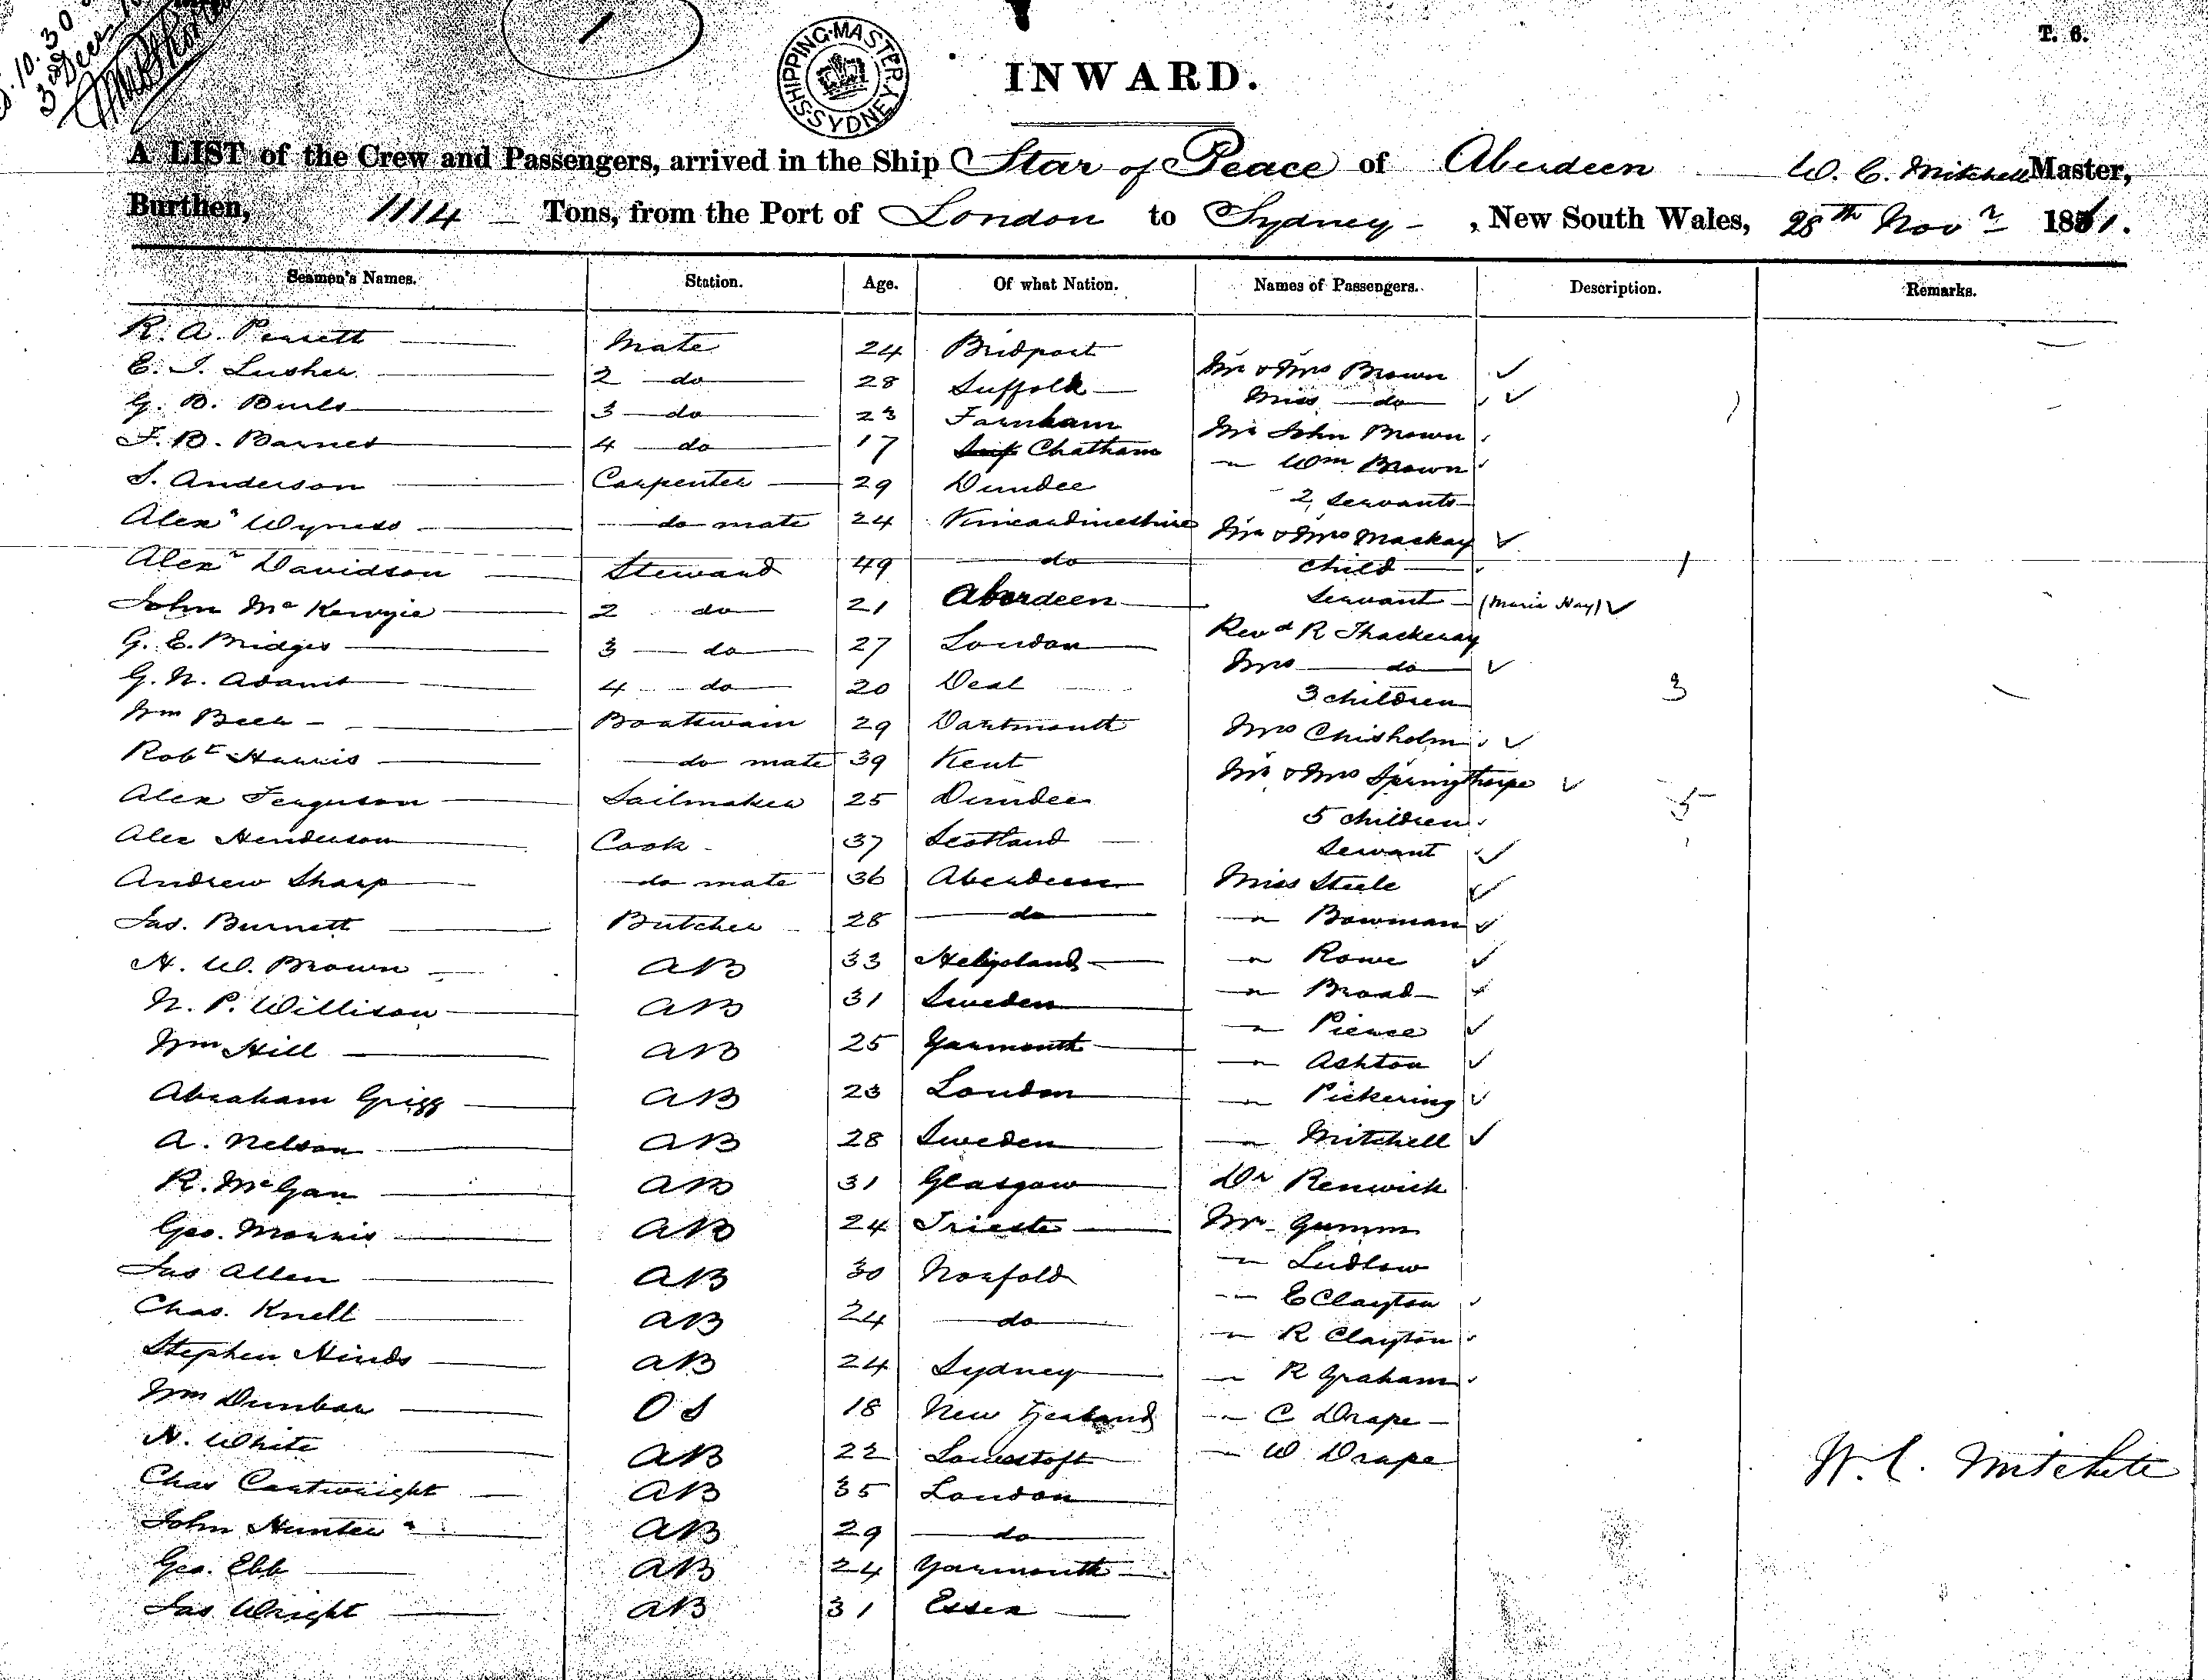 10.30
3rd Decr
1
SHIPPING MASTER SYDNEY
T. 6.
INWARD.
A LIST of the Crew and Passengers, arrived in the Ship Star of Peace of Aberdeen W. C. Mitchell Master,
Burthen, 1114 Tons, from the Port of London to Sydney, New South Wales, 28th Novr 1861.
Seamen's Names. Station. Age. Of what Nation. Names of Passengers. Description. Remarks.
R. A. Perrett Mate 24 Bridport
Mr & Mrs Brown
E. J. Lusher 2 do 28 Suffolk
Miss do
G. B. Burls 3 do 23 Farnham
Mr John Brown
F. B. Barnes 4 do 17 Chatham
" Wm Brown
S. Anderson Carpenter 29 Dundee
2 Servants
Alexr Wyness do mate 24 Kincardineshire
Mr & Mrs Mackay
Alexr Davidson Steward 49 do
child 1
John Mc 2 do 21 Aberdeen
Servant (Maria Hay)
G. E. Bridges 3 do 27 London
Revd R Thackeray
Mrs do
G. N. Adams 4 do 20 Deal
3 children 3
Wm Beer Boatswain 29 Dartmouth
Mrs Chisholm
Robt Harris do mate 39 Kent
Mr & Mrs Springthorpe
Alex Ferguson Sailmaker 25 Dundee
5 children 5
Alex Henderson Cook 37 Scotland
Servant
Andrew Sharp do mate 36 Aberdeen
Miss Steele
Jas. Burnett Butcher 28 do
" Bowman
H. W. Brown AB 33 Heligoland
" Rowe
N. P. Willison AB 31 Sweden
" Broad
" Pierce
Wm Hill AB 25 Yarmouth
" Ashton
Abraham Grigg AB 23 London
" Pickering
A. Nelson AB 28 Sweden
" Mitchell
R. McGan AB 31 Glasgow
Dr Renwick
Geo. Morris AB 24 Trieste
Mr Gumm
" Ludlow
Jas Allen AB 30 Norfolk
" E Clayton
Chas. Knell AB 24 do
" R Clayton
Stephen Hinds AB 24 Sydney
" R Graham
Wm Dunbar OS 18 New Zealand
" C Drape
H. White AB 22 Lowestoft
" W Drape
W. C. Mitchell
Chas Cartwright AB 35 London
John Hunter AB 29 do
Geo. Ebb AB 24 Yarmouth
Jas Wright AB 31 Essex